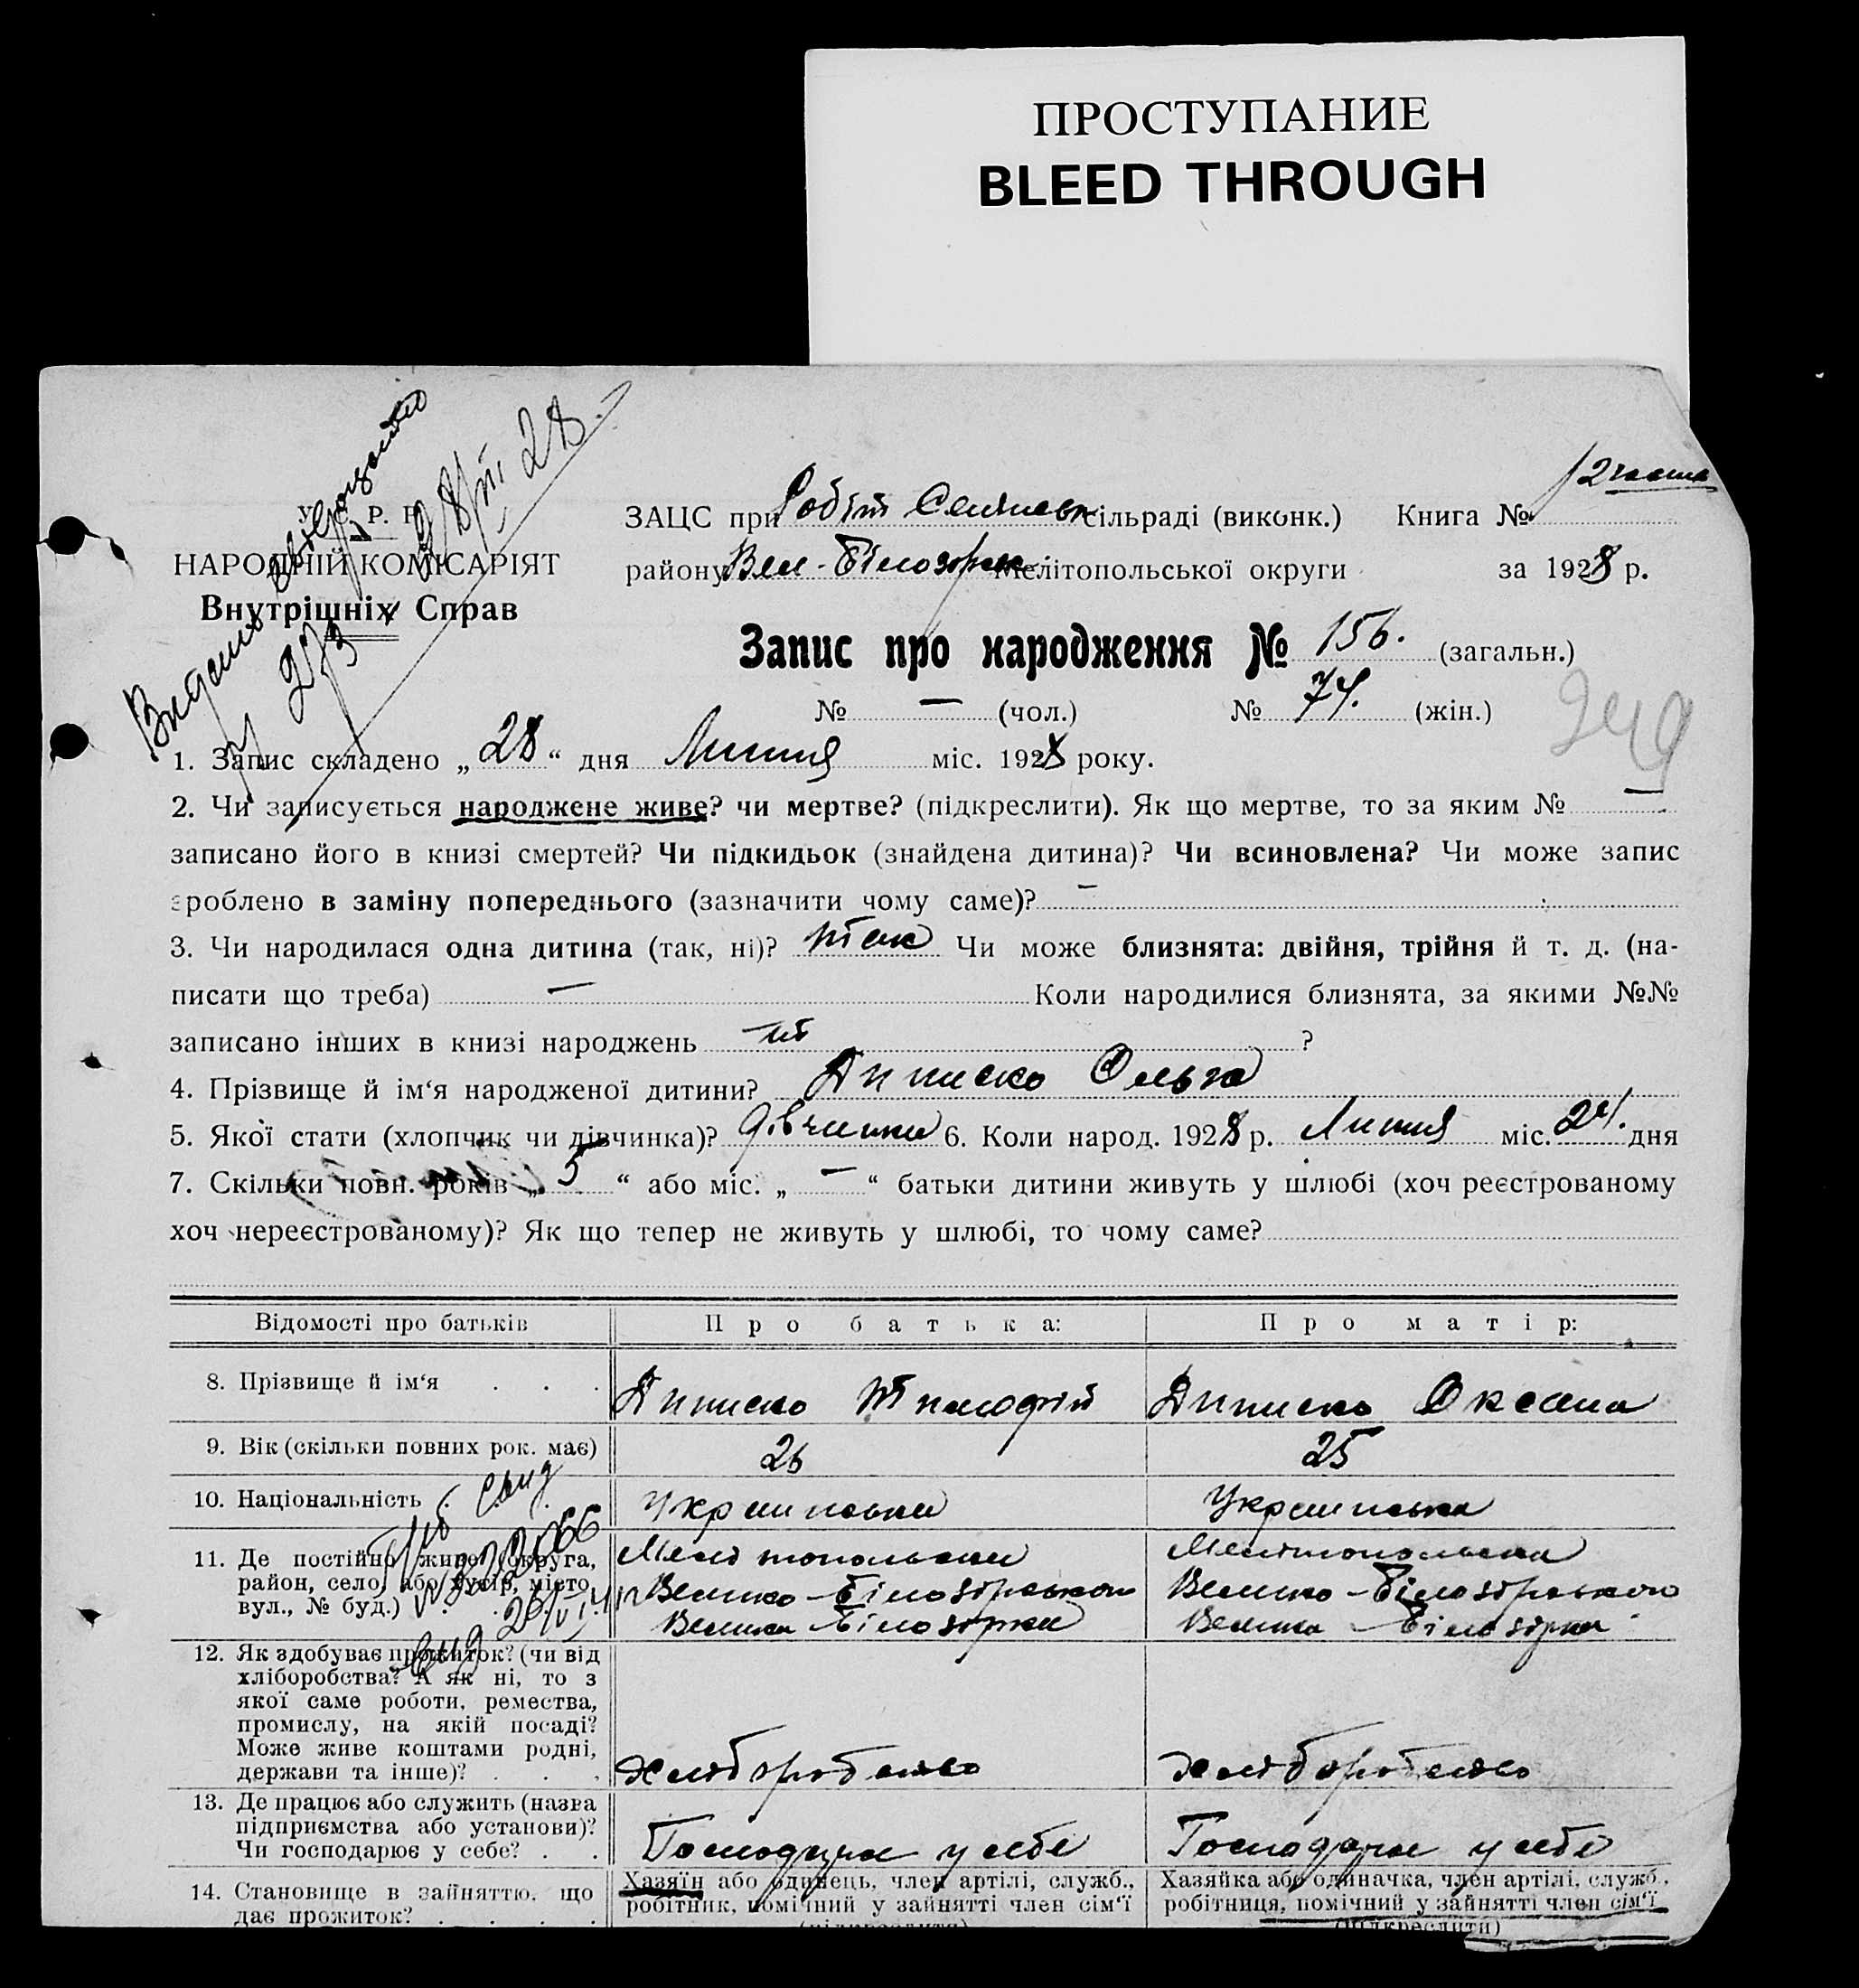 ПРОСТУПАНИЕ
BLEED THROUGH
2 часть
У. С. Р. Р.
НАРОДНІЙ КОМІСАРІЯТ
Внутрішніх Справ
Видано
28/VII 28.
ЗАЦС при сільраді (виконк.) Книга №
району Вел-Білозірка Мелітопольської округи за 1928 р.
Запис про народження № 156. (загальн.)
№ — (чол.) № 74. (жін.)
249
1. Запис складено „28“ дня Липня міс. 1928 року.
2. Чи записується народжене живе? чи мертве? (підкреслити). Як що мертве, то за яким № —
записано його в книзі смертей? Чи підкидьок (знайдена дитина)? Чи всиновлена? Чи може запис
зроблено в заміну попереднього (зазначити чому саме)? —
3. Чи народилася одна дитина (так, ні)? так Чи може близнята: двійня, трійня й т. д. (на-
писати що треба) — Коли народилися близнята, за якими №№
записано інших в книзі народжень ?
4. Прізвище й ім‘я народженої дитини? Ольга
5. Якої стати (хлопчик чи дівчинка)? дівчинка 6. Коли народ. 1928 р. Липня міс. 24. дня
7. Скільки повн. років „5“ або міс. „—“ батьки дитини живуть у шлюбі (хоч реєстрованому
хоч нереєстрованому)? Як що тепер не живуть у шлюбі, то чому саме?
Відомості про батьків Про батька: Про матір:
8. Прізвище й ім‘я . . . Тимофій Оксана
9. Вік (скільки повних рок. має) 26 25
10. Національність . Українська Українська
11. Де постійно живе (округа, Мелітопольська Мелітопольська
район, село, або хутір, місто, Велико-Білозірського Велико-Білозірського
вул., № буд.) Велика Білозірка Велика-Білозірка
12. Як здобуває прожиток? (чи від
хліборобства? А як ні, то з
якої саме роботи, ремества,
промислу, на якій посаді?
Може живе коштами родні,
держави та інше)? . . . Хліборобство Хліборобство
13. Де працює або служить (назва
підприємства або установи)?
Чи господарює у себе? . . Господарює у себе Господарює у себе
14. Становище в зайняттю, що Хазяїн або одинець, член артілі, служб., Хазяйка або одиначка, член артілі, служб.,
дає прожиток? . . . . робітник, помічний у зайнятті член сім‘ї робітниця, помічний у зайнятті член сім‘ї
(підкреслити) (підкреслити)